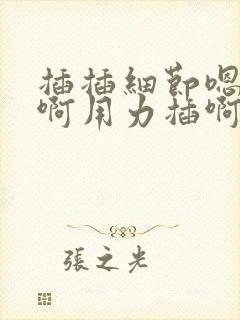 插插細節嗯
啊用力插啊
張之光